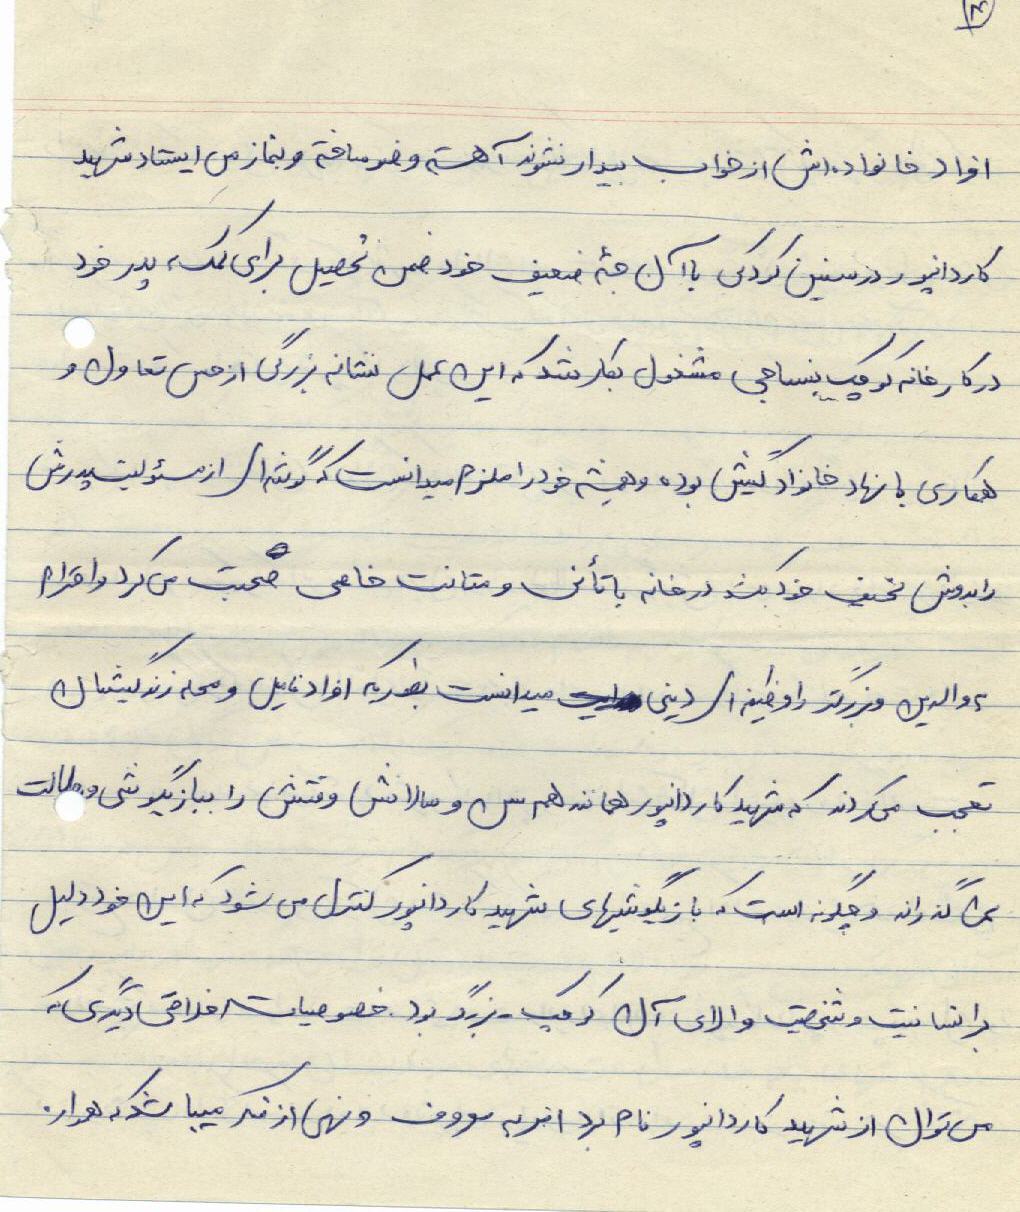 افراد خانواده‌اش از خواب بیدار نشوند آهسته وضو ساخته و بنماز می ایستاد شهید
کاردانپور در سنین کودکی با آن جثه ضعیف خود ضمن تحصیل برای کمک به پدر خود
در کارخانه کوچک نساجی مشغول بکار شد که این عمل نشانه بزرگی از حس تعاون و
همکاری با نهاد خانوادگیش بوده و همیشه خود را ملزم میدانست که گوشه‌ای از مسئولیت پدرش
را بدوش نحیف خود بکشد در خانه با تأنی و متانت خاصی صحبت می کرد و احترام
به والدین و بزرگتر را وظیفه ای دینی میدانست بطوریکه افراد فامیل و محله زندگیشان
تعجب می‌کردند که شهید کاردانپور همانند هم سن و سالانش وقتش را ببازیگوشی و بطالت
نمی گذراند و چگونه است که بازیگوشیهای شهید کاردانپور کنترل می شود که این خود دلیل
بر انسانیت و شخصیت والای آن کوچک - بزرگ بود. خصوصیات اخلاقی دیگری که
می توان از شهید کاردانپور نام برد امر به معروف و نهی از منکر میباشد که